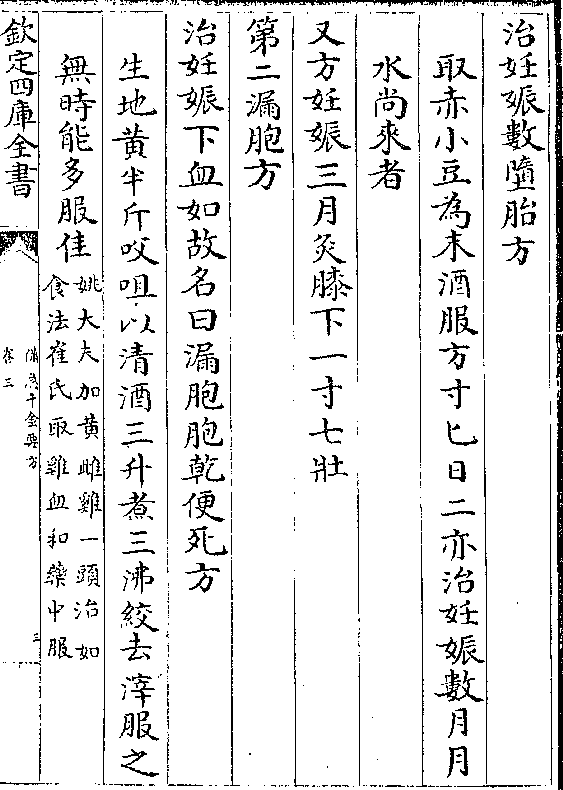 治妊娠數墮胎方
取赤小豆為末酒服方寸匕日二亦治妊娠數月月
水尚來者
又方妊娠三月灸膝下一寸七壯
第二漏胞方
治妊娠下血如故名曰漏胞胞乾便死方
生地黄半斤㕮咀以清酒三升煮三沸絞去滓服之
無時能多服佳
姚大夫加黄雌雞一頭治如
食法崔氏取雞血和藥中服
欽定四庫全書
備急千金要方
卷三
三